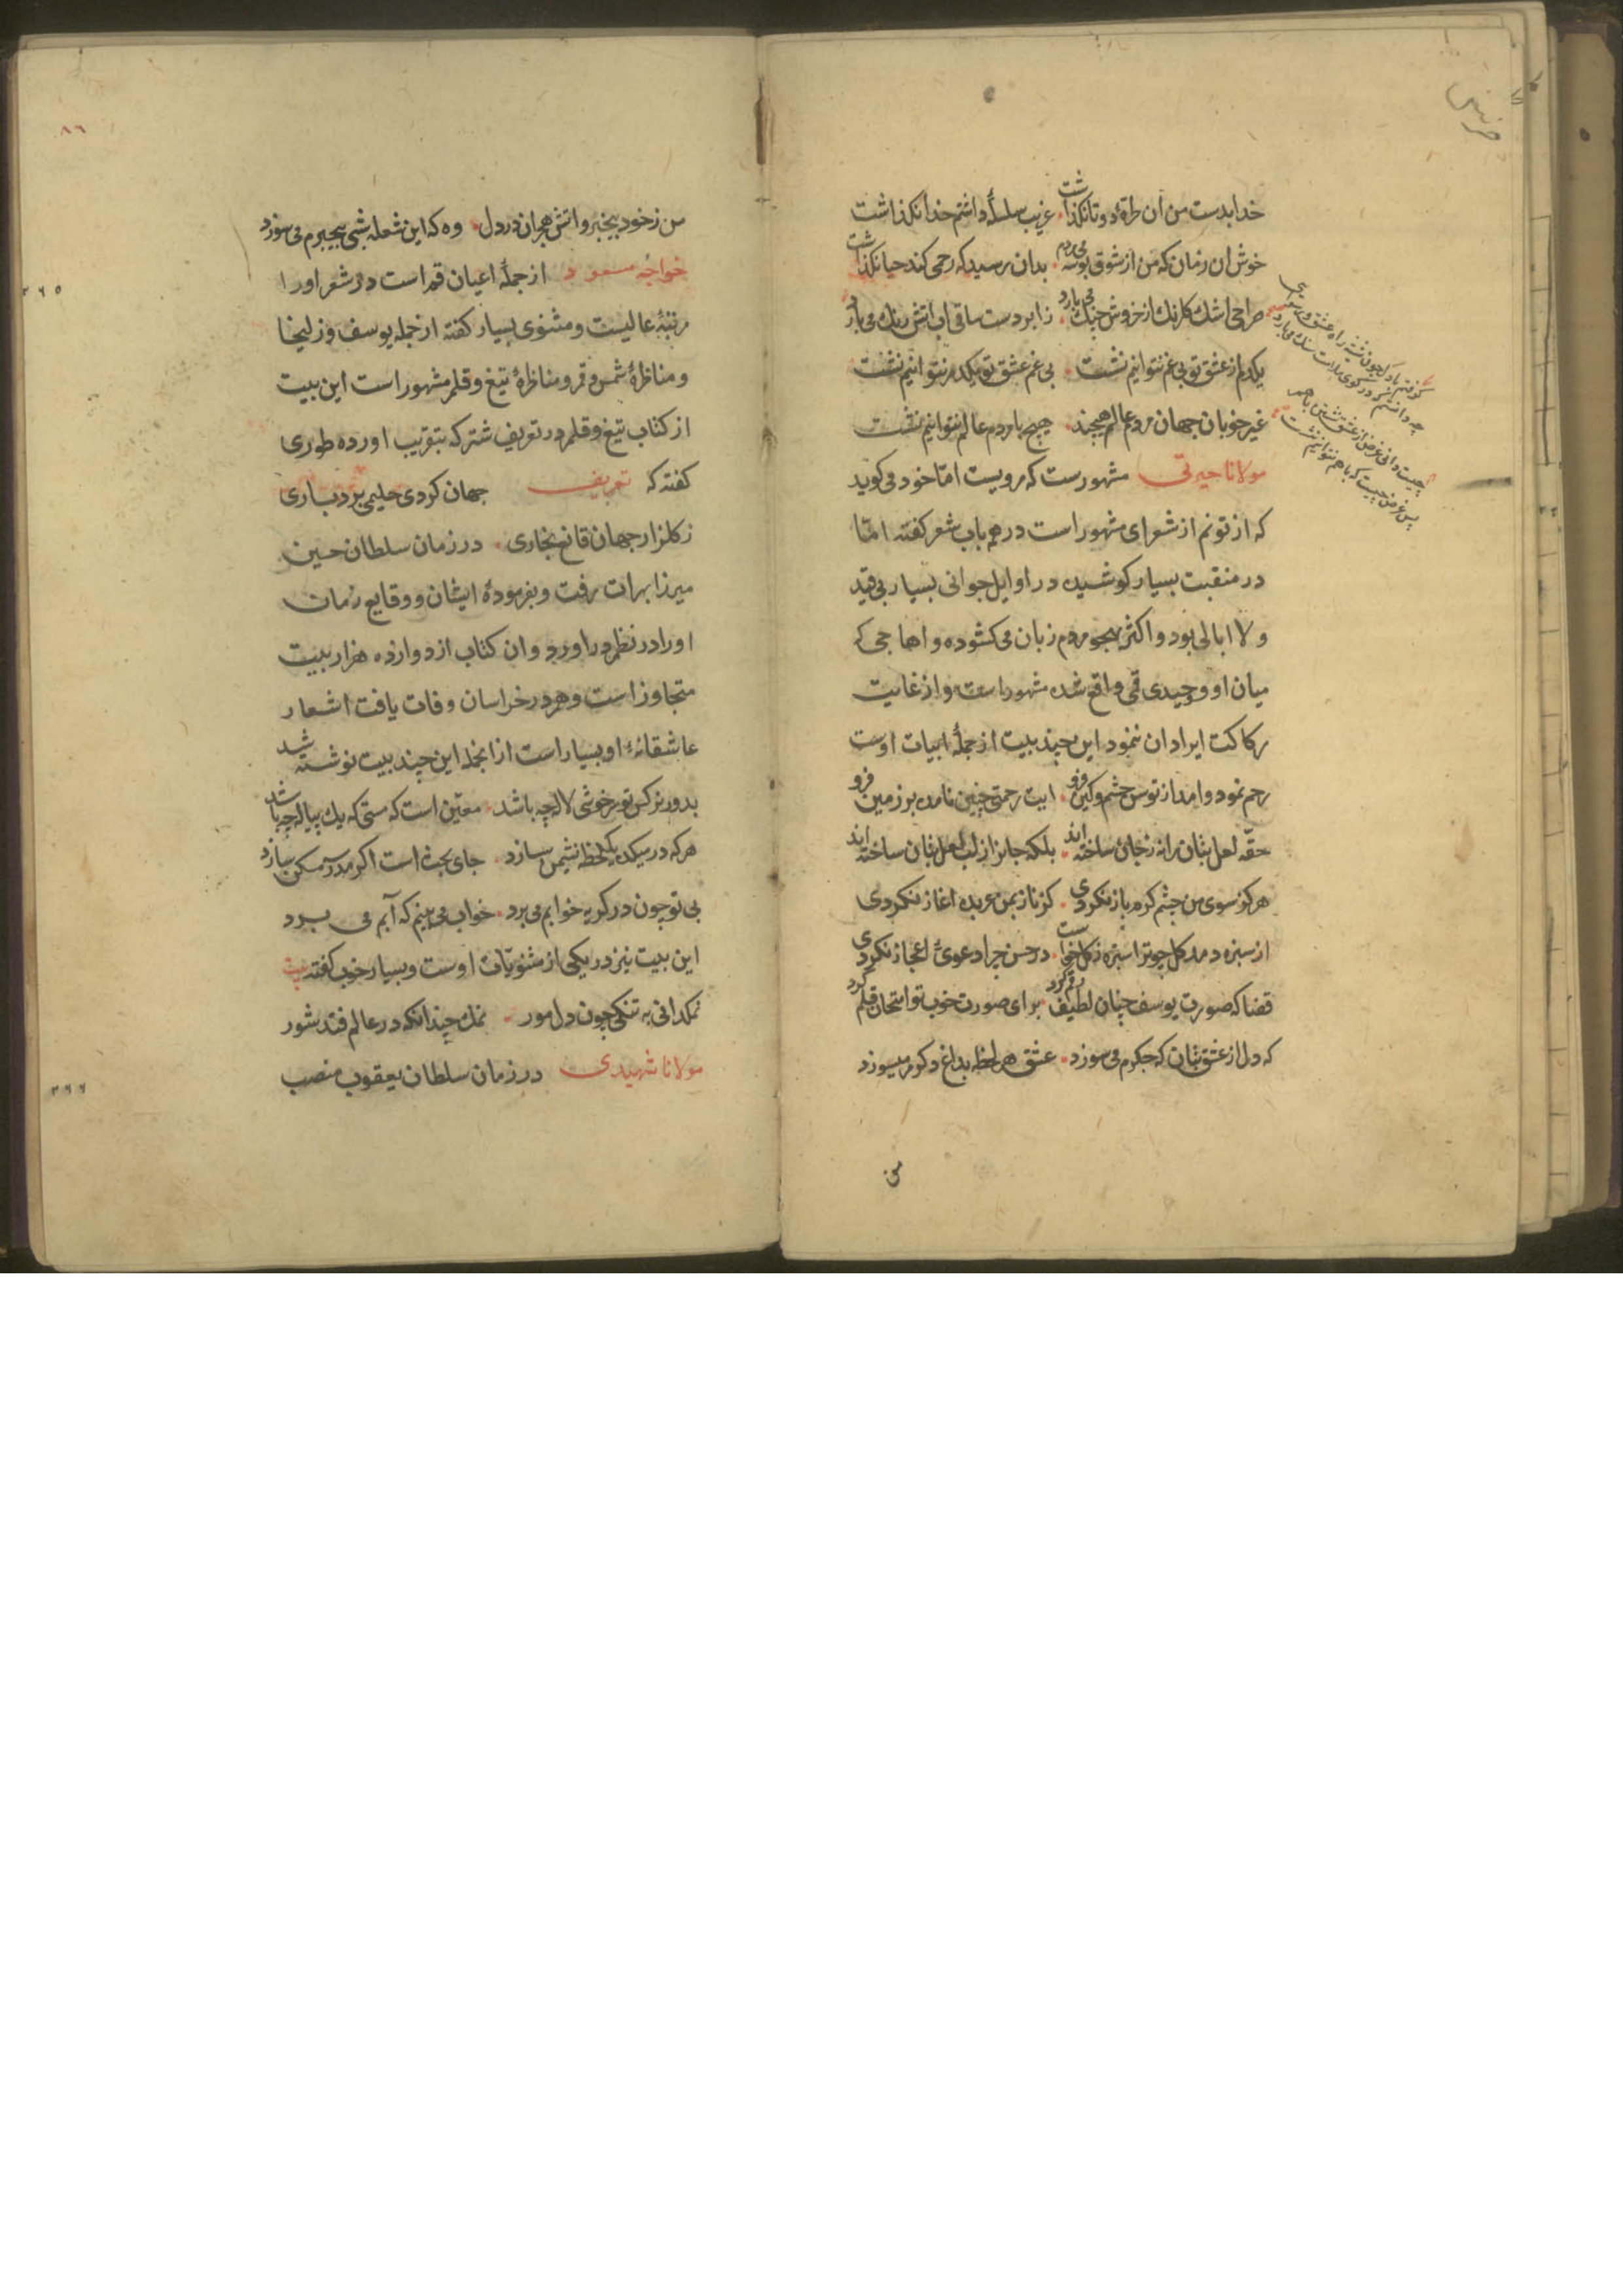 خدا بدست من ان طرۀ دوتا نکذاشت . غریب سلسلۀ داشتم خدا نکذاشت
خوش ان زمان که من از شوق بوسه می‌بردم . بدان رسید که رحمی کند حیا نکذاشت
صراحی اشك کلرنك از خروش جنك می بارد . ز ابر دست ساقی اب اتش رنك می بارد
یکدم از عشق تو بی غم نتوانیم نشست . بی غم عشق تو یکدم نتوانیم نشست
غیر خوبان جهان مردم عالم هیچند . هیچ با مردم عالم نتوانیم نشست
چیست دانی غرض از عشق نشستن باهم
پس غرض چیست که باهم نتوانیم نشست
مولانا حیرتی مشهورست که مرویست امّا خود می کوید
که از تونم از شعرای مشهور است در همه باب شعر کفته امّا
در منقبت بسیار کوشیده در اوایل جوانی بسیار بی قید
و لا ابالی بود و اکثر بهجو مردم زبان می کشوده و اهاجی که
میان او و وحیدی قمی واقع شده مشهور است و از غایت
رکاکت ایراد ان ننمود این چند بیت از جملۀ ابیات اوست
رحم نمود وامد از توسن خشم وکین فرو . ایت رحمتی چنین نامده بر زمین فرو
حقّه لعل بتان را نه ز جان ساخته اند . بلکه جانرا ز لب لعل بتان ساخته اند
هرکز سوی من چشم کرم باز نکردی . کز ناز بمن عربده اغاز نکردی
از سبزه دمد کل چو ترا سبزه ز کل خاست . در حسن چرا دعوی اعجاز نکردی
قضا که صورت یوسف چنان لطیف رقم کرد . برای صورت خوب تو امتحان قلم کرد
که دل از عشق بتان که جکرم می سوزد . عشق هر لحظه بداغ دکرم میسوزد
من
٨٦
من ز خود بیخبر و اتش هجران در دل . وه که این شعله شبی بیخبرم می سوزد
خواجه مسعود از جملۀ اعیان قم است و در شعر او را
مرتبۀ عالیست و مثنوی بسیار کفته از جمله یوسف و زلیخا
و مناظرۀ شمس و قمر و مناظرۀ تیغ و قلم مشهور است این بیت
از کتاب تیغ و قلم در تعریف شتر که بتقریب اورده طوری
کفته که تعریف جهان کردی حلیمی بردباری
ز کلزار جهان قانع بخاری . در زمان سلطان حسین
میرزا بهرات رفت و بفرمودۀ ایشان و وقایع زمان
او را در نظم در اورد و ان کتاب از دوازده هزار بیت
متجاوز است و هم در خراسان وفات یافت اشعار
عاشقانۀ او بسیار است از انجمله این چند بیت نوشته شد
بدور نرکس تو سرخوشی لاله چه باشد . معیّن است که مستی که یك پیاله چه باشد
هر که در میکده یکلحظه نشیمن سازد . جای بحث است اکر مدرسه مسکن سازد
بی تو چون در کریه خوابم می برد . خواب می بینم که آبم می برد
این بیت نیز در یکی از مثنویّات اوست و بسیار خوب کفته بیت
نمکدانی به تنکی چون دل مور . نمك چندانکه در عالم فتد شور
مولانا شهیدی در زمان سلطان یعقوب منصب
٣٦٥
٣٦٦